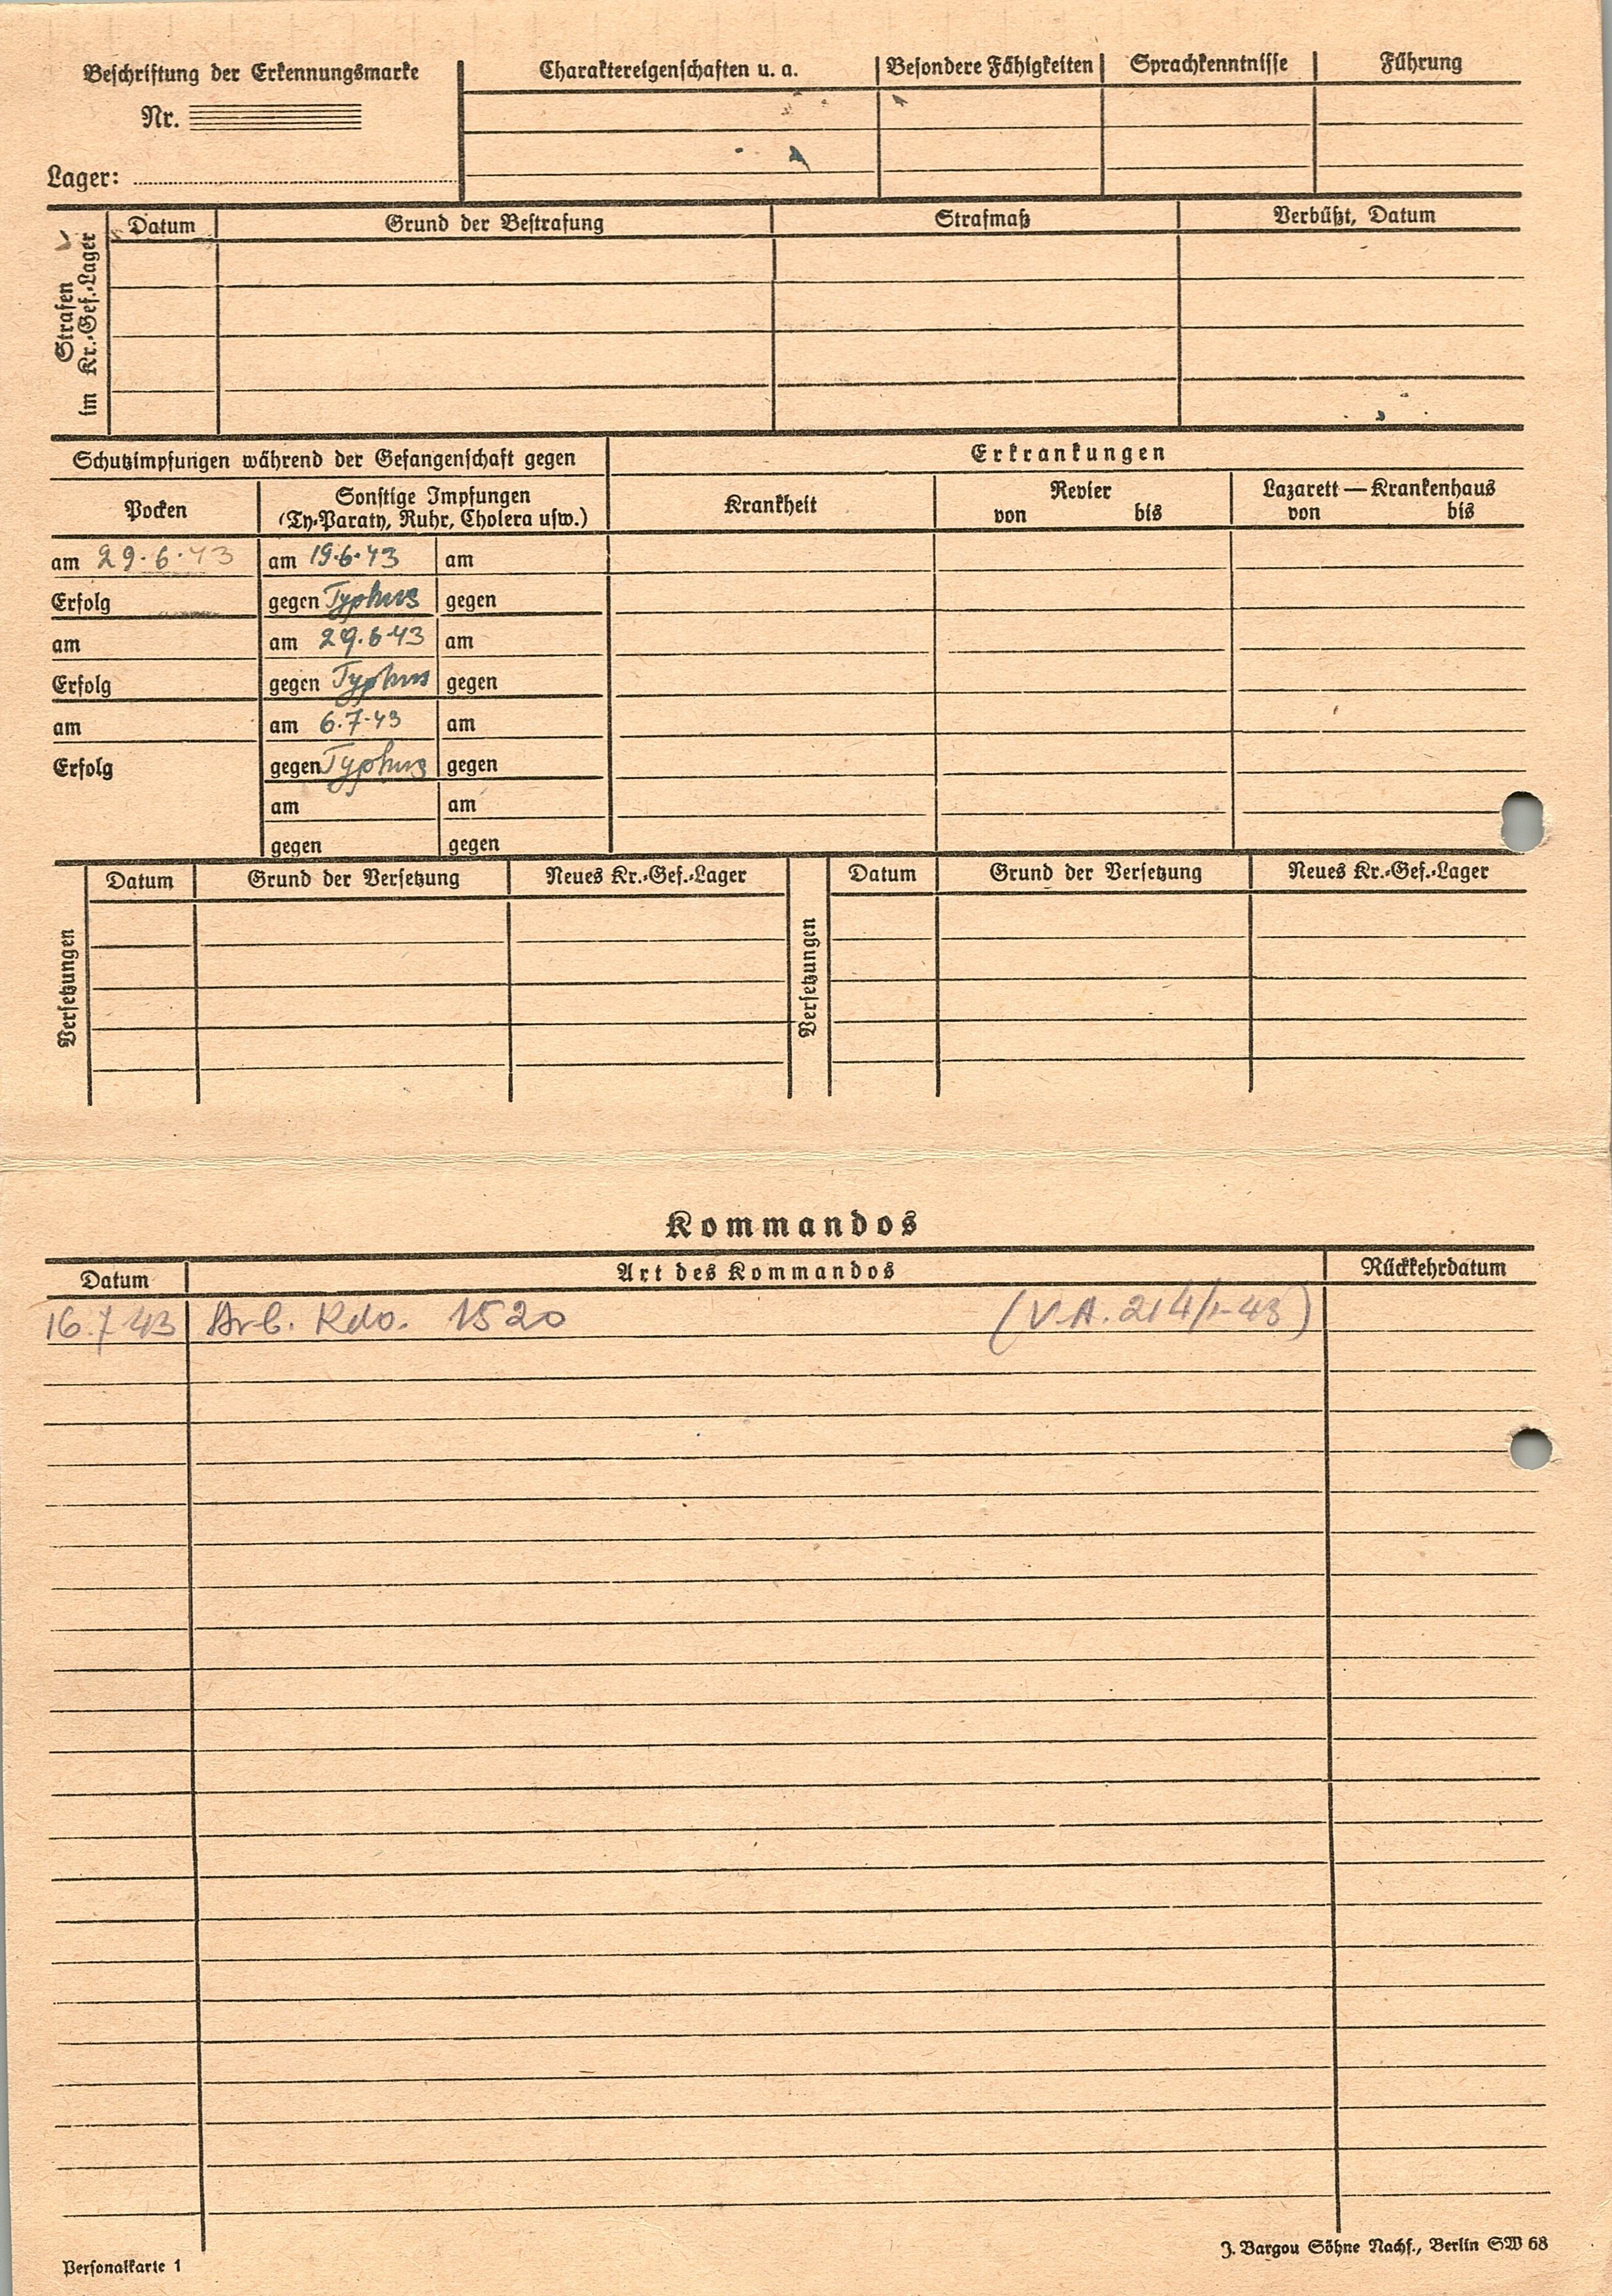 Beschriftung der Erkennungsmarke
Nr.
Lager:
Charaktereigenschaften u. a.
Besondere Fähigkeiten
Sprachkenntnisse
Führung
Strafen
im Kr.-Gef.-Lager
Datum
Grund der Bestrafung
Strafmaß
Verbüßt, Datum
Schutzimpfungen während der Gefangenschaft gegen
Erkrankungen
Pocken
Sonstige Impfungen
(Ty-Paraty, Ruhr, Cholera usw.)
Krankheit
Revier
von bis
Lazarett — Krankenhaus
von bis
am 29.6.43 am 19.6.43 am
Erfolg gegen Typhus gegen
am am 29.6.43 am
Erfolg gegen Typhus gegen
am am 6.7.43 am
Erfolg gegen Typhus gegen
am am
gegen gegen
Versetzungen
Datum Grund der Versetzung Neues Kr.-Gef.-Lager
Versetzungen
Datum Grund der Versetzung Neues Kr.-Gef.-Lager
Kommandos
Datum Art des Kommandos Rückkehrdatum
16.7.43 Arb. Kdo. 1520 (V.A. 214/1-43)
Personalkarte 1
J. Bargou Söhne Nachf., Berlin SW 68